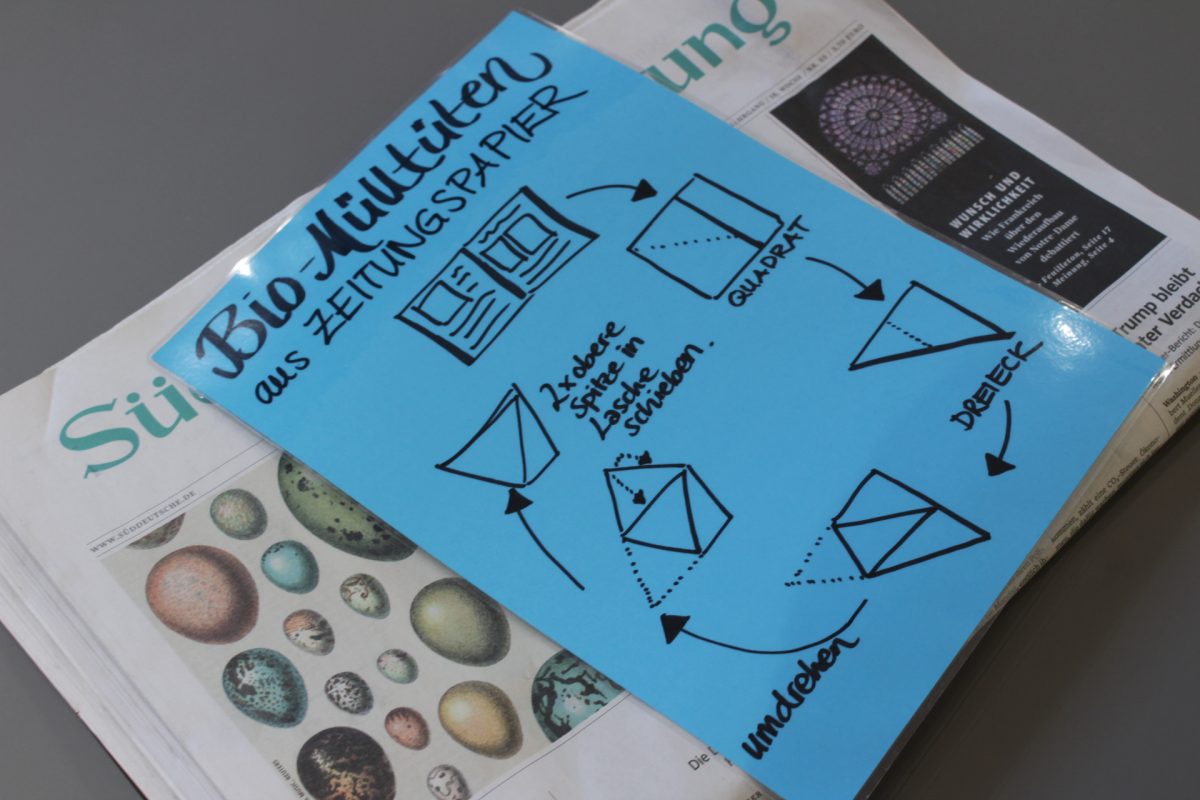 Bio-Mülltüten
aus ZEITUNGSPAPIER
QUADRAT
DREIECK
umdrehen
2x obere
Spitze in
Lasche
schieben.
Sü
ung
WWW.SUEDDEUTSCHE.DE
WUNSCH UND
WIRKLICHKEIT
Wie Frankreich
über den
Wiederaufbau
von Notre-Dame
debattiert
Feuilleton, Seite 17
Meinung, Seite 4
Trump bleibt
ter Verdac
Washington
Die